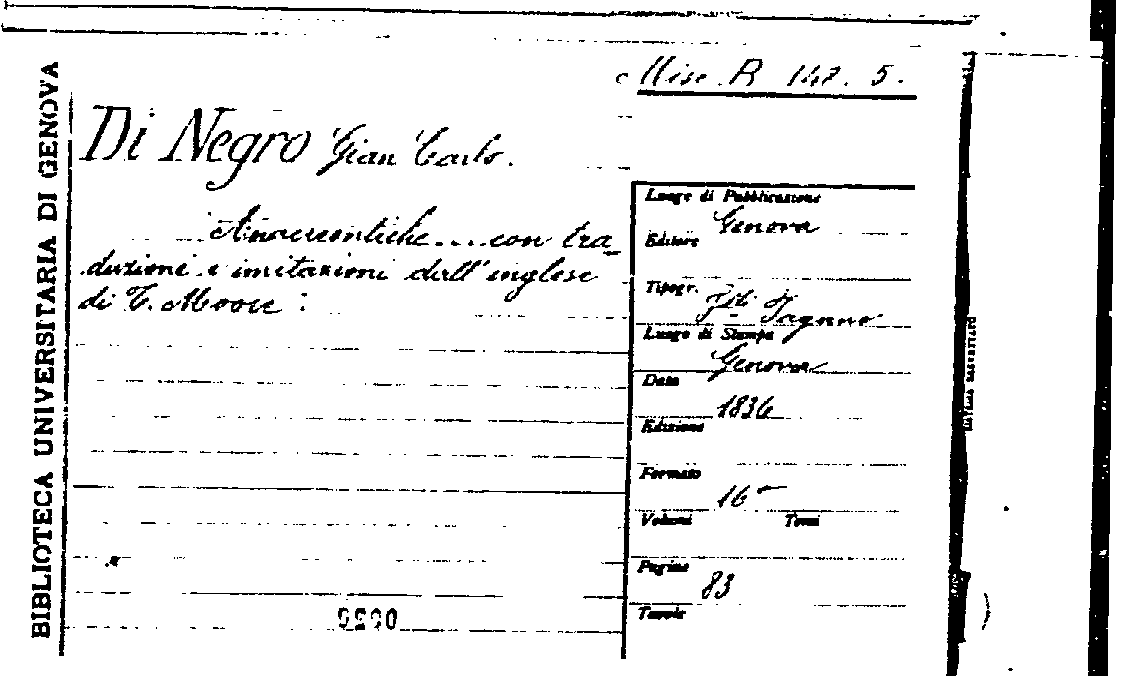 BIBLIOTECA UNIVERSITARIA DI GENOVA
Misc. B 147. 5.
Di Negro Gian Carlo.
Anacreontiche .... con tra-
duzioni e imitazioni dall'inglese
di T. Moore :
Luogo di Pubblicazione
Genova
Editore
Tipogr.
F.lli Pagano
Luogo di Stampa
Genova
Data
1836
Edizione
Formato
16°
Volumi Tomi
Pagine
83
Tavole